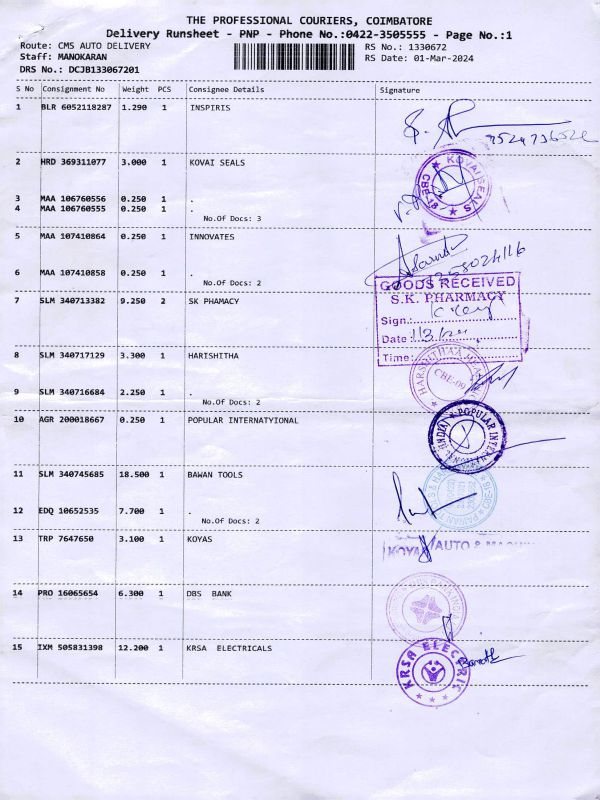 THE PROFESSIONAL COURIERS, COIMBATORE
Delivery Runsheet - PNP - Phone No.:0422-3505555 - Page No.:1
Route: CMS AUTO DELIVERY RS No.: 1330672
Staff: MANOKARAN RS Date: 01-Mar-2024
DRS No.: DCJB133067201
S No Consignment No Weight PCS Consignee Details Signature
1 BLR 6052118287 1.290 1 INSPIRIS
2 HRD 369311077 3.000 1 KOVAI SEALS
KOVAI SEALS CBE-18
3 MAA 106760556 0.250 1 .
4 MAA 106760555 0.250 1 .
No.Of Docs: 3
5 MAA 107410864 0.250 1 INNOVATES
6 MAA 107410858 0.250 1 .
No.Of Docs: 2
7 SLM 340713382 9.250 2 SK PHAMACY
GOODS RECEIVED
S.K. PHARMACY
Sign:
Date:
Time:
8 SLM 340717129 3.300 1 HARISHITHA
9 SLM 340716684 2.250 1 .
No.Of Docs: 2
10 AGR 200018667 0.250 1 POPULAR INTERNATYIONAL
11 SLM 340745685 18.500 1 BAWAN TOOLS
12 EDQ 10652535 7.700 1 .
No.Of Docs: 2
13 TRP 7647650 3.100 1 KOYAS
KOYAS AUTO &
14 PRO 16065654 6.300 1 DBS BANK
15 IXM 505831398 12.200 1 KRSA ELECTRICALS
KRSA ELECTRIS